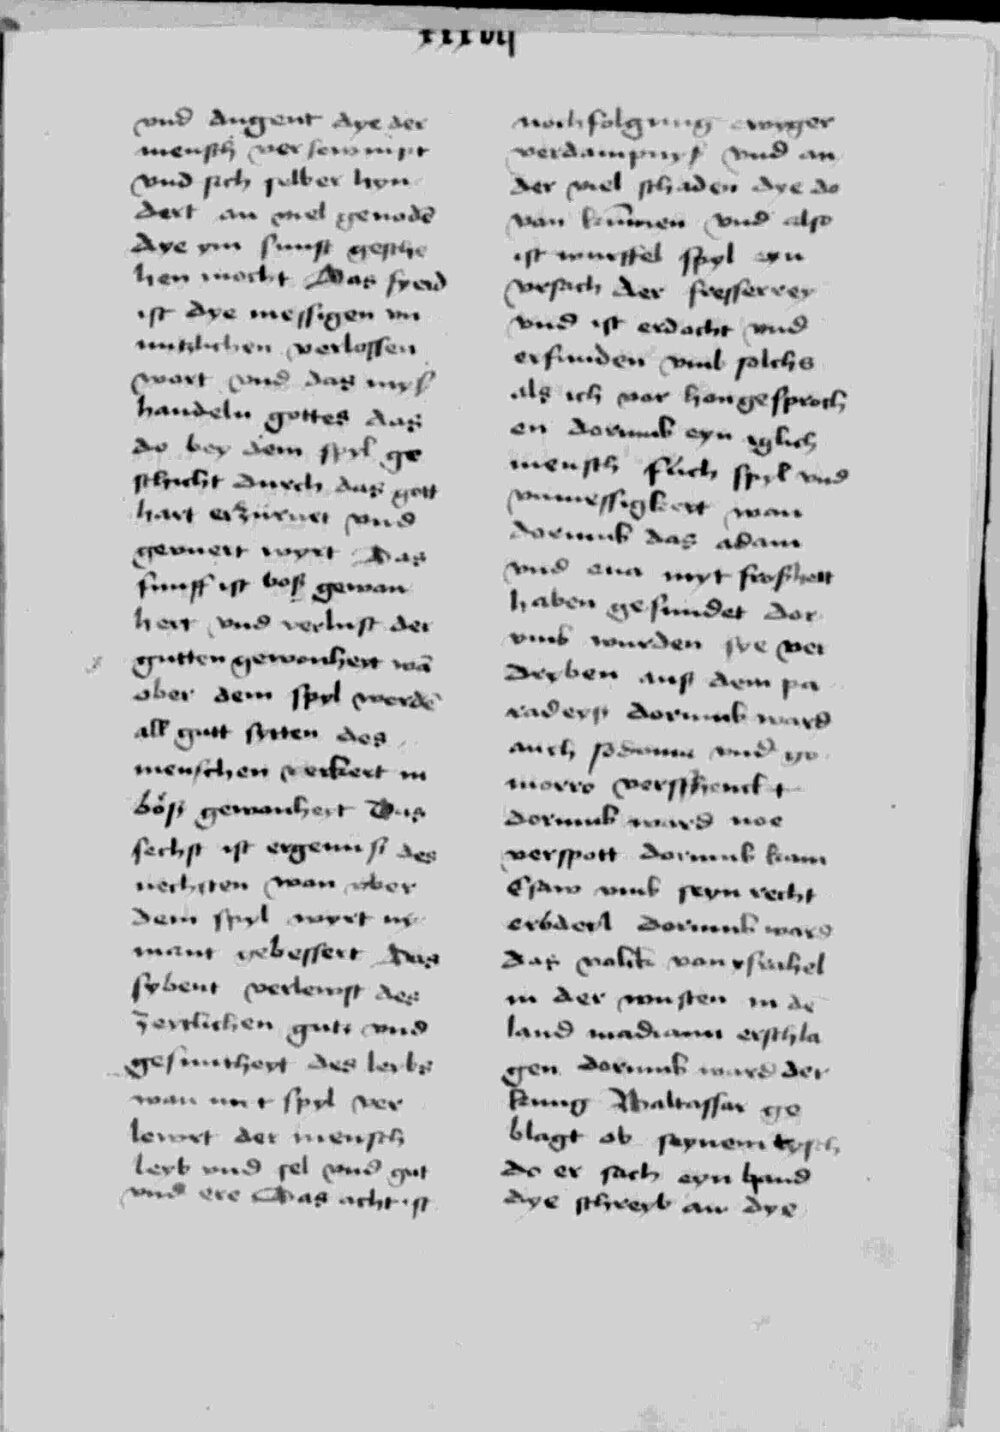 vnd dugent dye der
mensch versewmpt
vnd sich selber hyn
dert an viel genodē
dye ym sunst gesche
hen mocht Das fyerd
ist dye messigen vn
nutzlichen verlossen
wort vnd das myß
handeln gottes das
do bey dem spyl ge
schicht durch das gott
hart erzürnet vnd
gevnert wyrt Das
funff ist boß gewon
heyt vnd verlust der
gutten gewonheyt wā
ober dem spyl werdē
all gutt sytten des
menschen verkert in
böß gewonheyt Das
sechst ist ergernuß des
nechsten wan vber
dem spyl wyrt ny
mant gebessert Das
sybent verlewst des
zeytlichen guts vnd
gesuntheyt des leybs
wan mit spyl ver
lewrt der mensch
leyb vnd sel vnd gut
vnd ere Das acht ist
nochfolgung ewyger
verdampnyß vnd an
der viel schaden dye do
van kūmen vnd also
ist wurffel spyl eyn
vrsach der fresserrey
vnd ist erdocht vnd
erfunden vmb solchs
als ich vor hongesproch
en dorumb eyn iglich
mensch fluch spyl vnd
vnmessigkeyt wan
dorumb das adam
vnd eua myt froßheit
haben gesundet dor
vmb wurden sye ver
dryben auß dem pa
radeyß dorumb ward
auch sodoma vnd go
morro versenckt
dorumb ward noe
verspott dorumb kam
Esaw vmb seyn recht
erbdeyl dorumb ward
das volck von ysrahel
in der wusten in dē
land madiann erschla
gen dorumb ward der
kung Waltassar ge
blagt ob seynem tysch
do er sach eyn hand
dye schreyb an dye